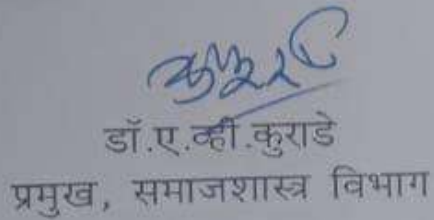 डॉ.ए.व्ही.कुराडे
प्रमुख, समाजशास्त्र विभाग